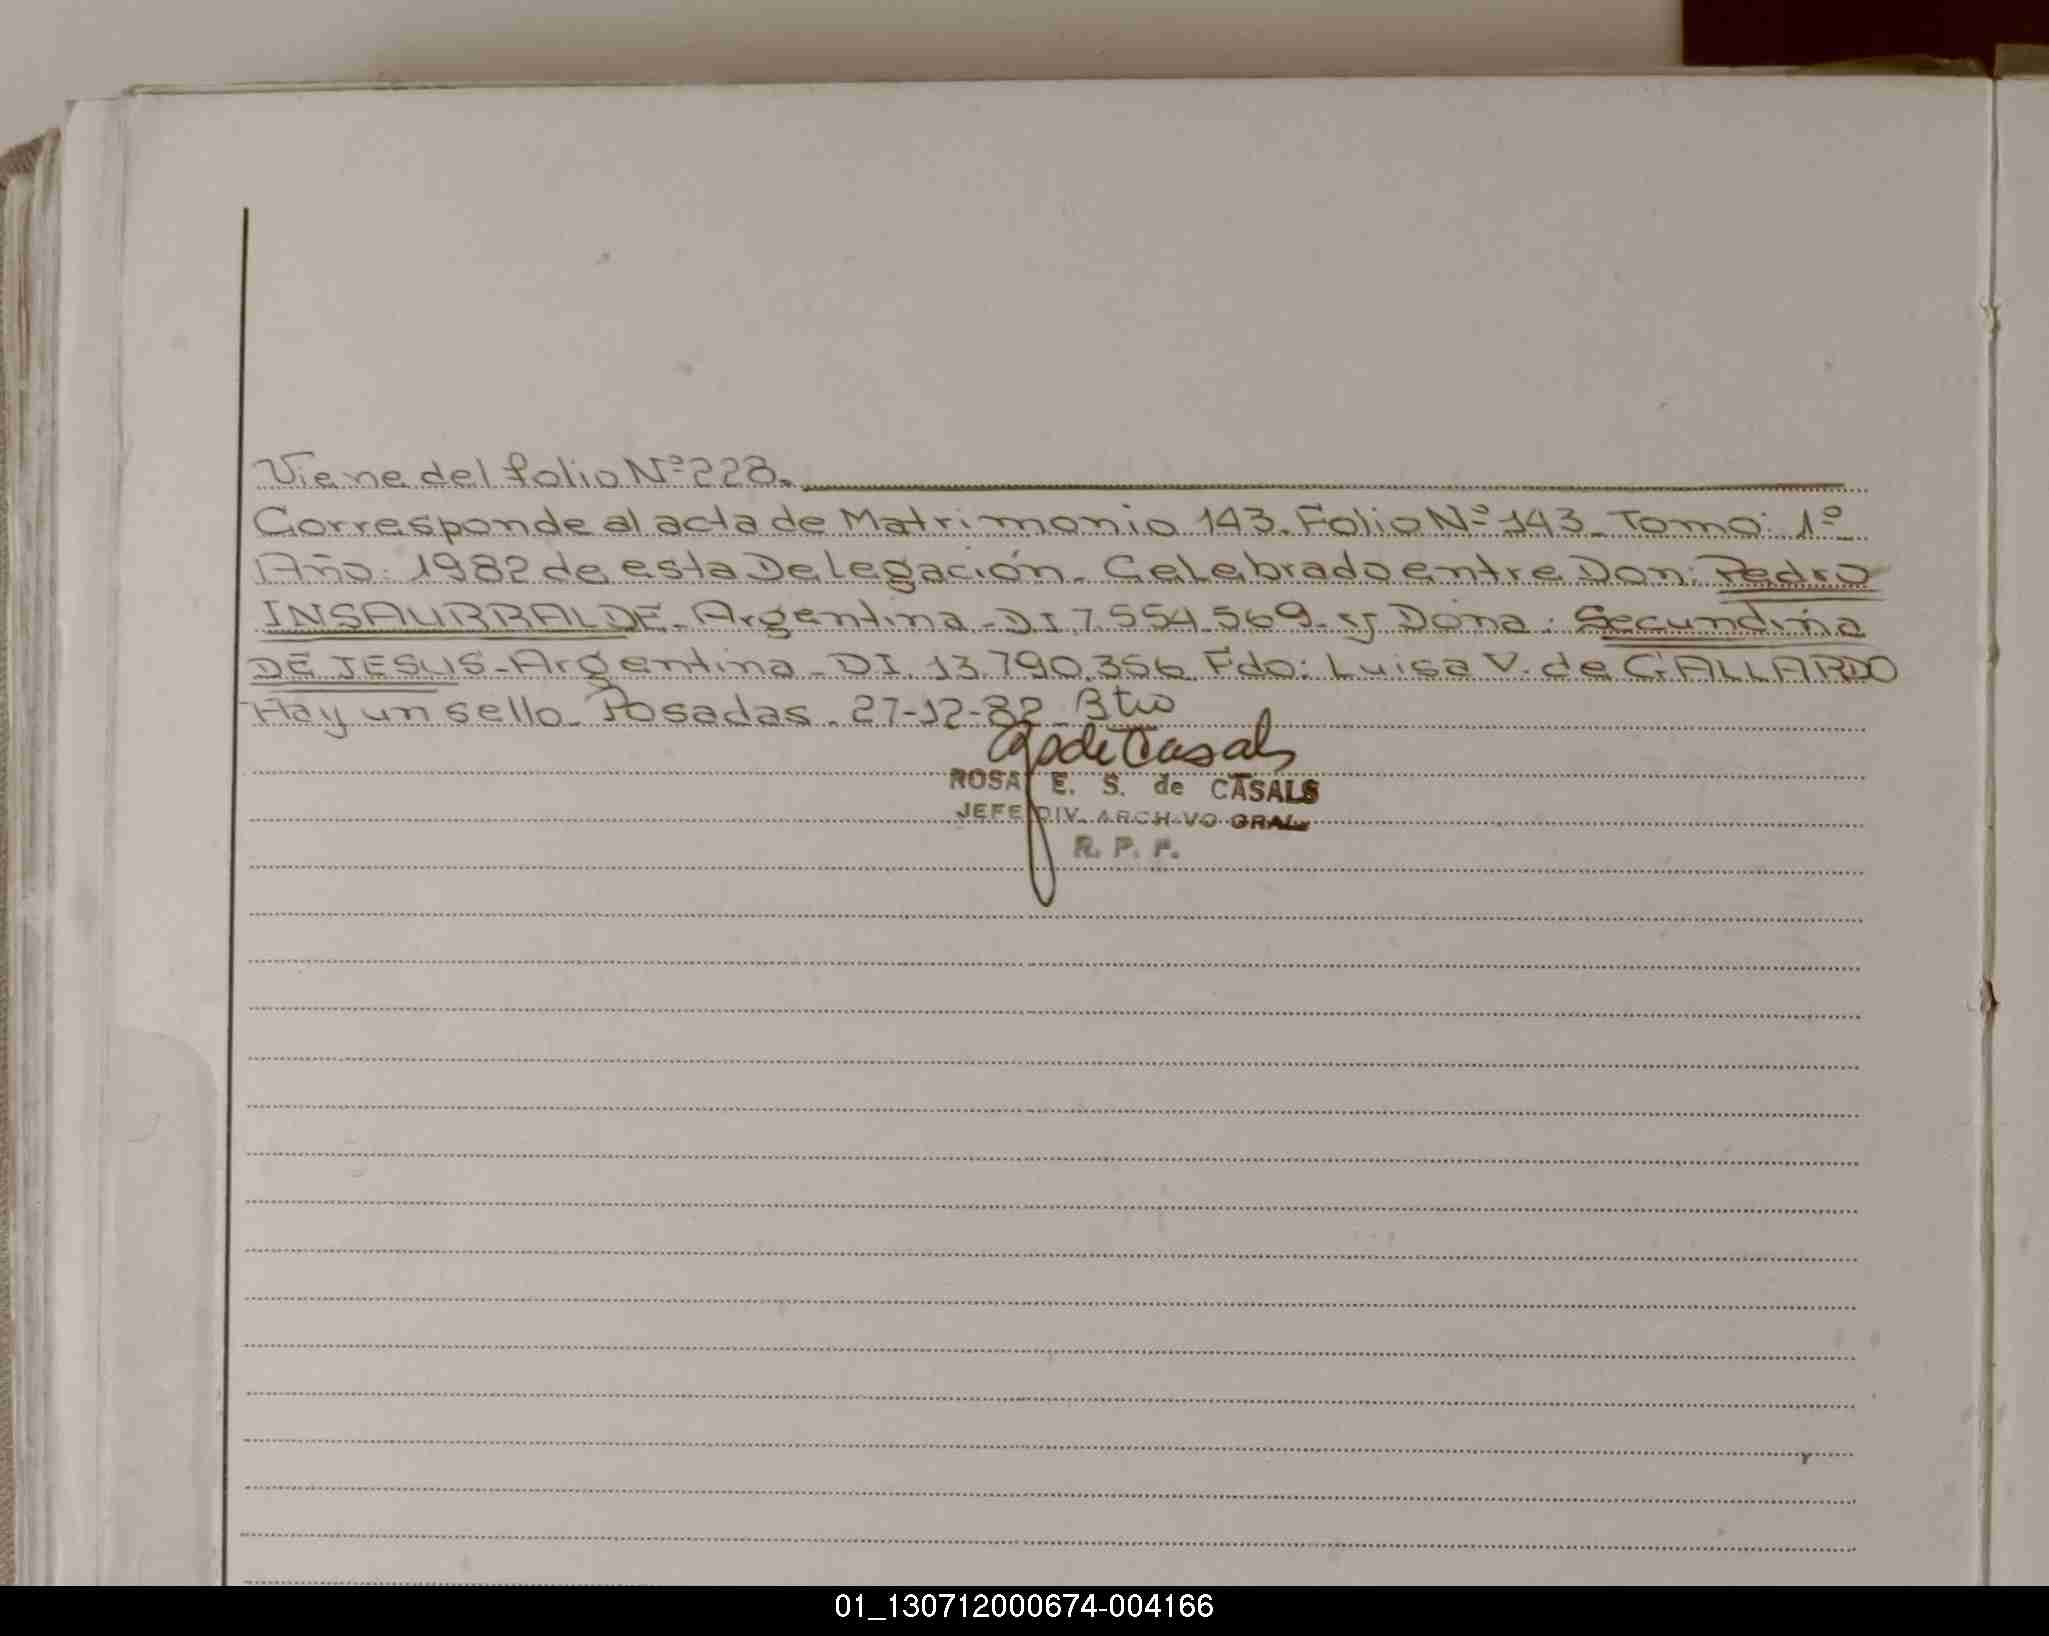 Viene del folio Nº 228.
Corresponde al acta de Matrimonio 143. Folio Nº 143_ Tomo: 1º_
Año: 1982 de esta Delegación. Celebrado entre Don: Pedro
INSAURRALDE_ Argentina_ DI 7.554.569_ y Doña: Secundina
DE JESUS_ Argentina_ DI. 13.790.356 Fdo: Luisa V. de GALLARDO
Hay un sello_ Posadas. 27-12-82_
de Casals
ROSA E. S. de CASALS
JEFE DIV. ARCHIVO GRAL.
R. P. P.
01_130712000674-004166